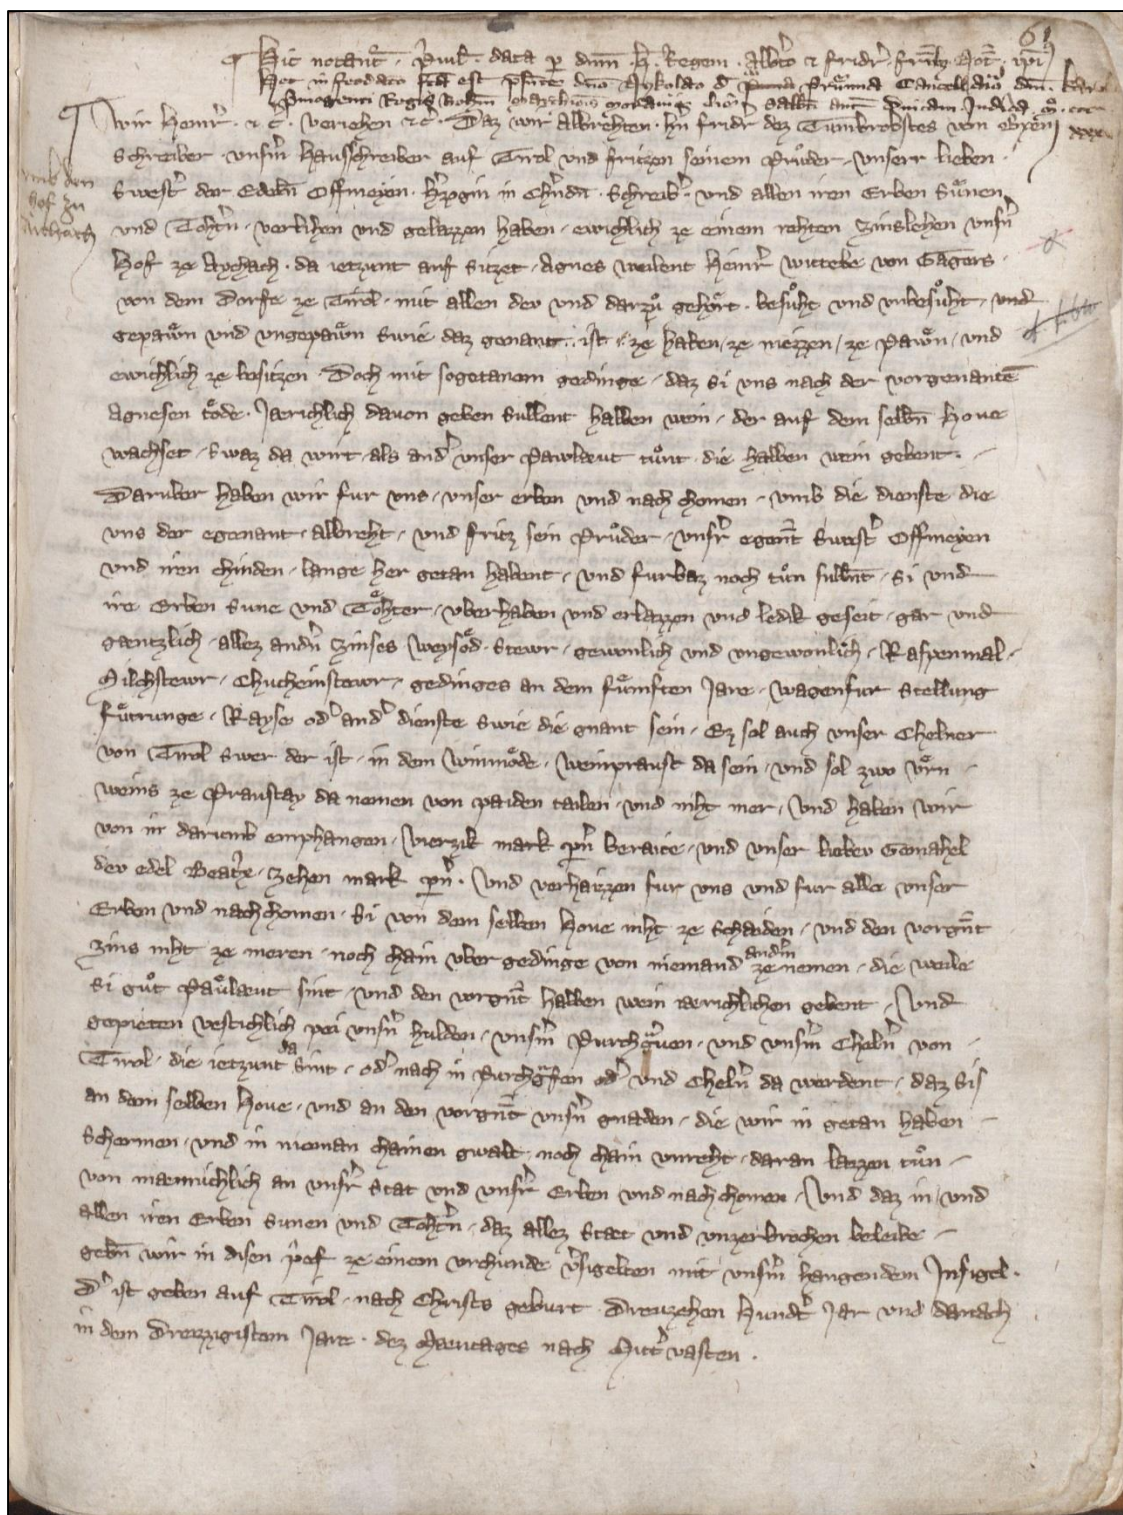 61
Hic notant͛ . p̉uil̅ . data p̲ dnm̅ . H . Regem . Alb̉to ⁊ fridr̉ . fr̅ib
Hoc est
Wir Heinr̉ . ⁊ c̉ . veriehen ⁊c̉ . Daz wir Albrehten . hn̅ fridr̉ dez Tumbrobstes von
schreiber . vnsm̉ Hausschreiber auf Tirol vnd fritzen seinem Průder . vnserr lieben .
umb den
hof zu
Aichach
swest̉ der Edeln̅ Offmeyen . h̉zogin in Ch̉nden . schreib̉ . vnd allen iren Erben Sůnen
vnd Toht̉n . verlihen vnd gelazzen haben . ewichlich ze einem rehten Zinslehen vnsn̉
Hof ze Aychach . da ietzunt auf sitzet . Agnes weilent Heinr̉ wittebe von Gagers .
von dem Dorfe ze Tirol . mit allen dev vnd darzů gehört . besůht vnd vnbesůht . vnd
gepawn vnd vngepawn swie daz genant . ist . ze haben / ze niezzen / ze pawn / vnd
ewichlich ze besitzen . Doch mit sogetanem gedinge . daz si vns nach der vorgenante̅
Agnesen tode . Jaerichlich dauon geben sullent halben wein . der auf dem selbn̅ Houe
wachset . swaz da wirt . als and̉ vnser Pawlaeut tůnt . die halben wein gebent .
Daruber haben wir fur vns . vnser erben vnd nach chomen . vmb die dienste die
vns der egenant . Albreht . vnd fritz sein Průder . vnsr̉ egent̅ swest̉ Offmeyen
vnd iren chinden . lange her getan habent . vnd furbaz noch tůn sullnt̅ . si vnd
ire Erben sune vnd Töhter . vberhaben vnd erlazzen vnd ledik geseit . gar vnd
gaentzlich . allez andn̉ Zinses Weysöd . Stewr . gewonlich vnd vngewonlich . Raspenmal .
Milchstewr . Chucheinstewr . gedinges an dem fůmften Jare . Wagenfur Stellung
fůtrunge . Rayse od̉ and̉ dienste swie die gnant sein . Ez sol auch vnser Chelner
von Tirol swer der ist . in dem Winmode . Weinpraust da sein . vnd sol zwo vrn
weins ze Praustay da nemen von paiden tailen . vnd niht mer . Vnd haben wir
von in darumb emphangen . Vierzik mark pn̉ beraite . vnd vnser liebev Gemahel
dev edel Beat̉x . zehen mark pn̉ . Vnd verhaizzen fur vns vnd fur alle vnser
Erben vnd nachchomen . si von dem selben Houe niht ze schaiden . vnd den vorgnt̅
zins niht ze meren . noch chain vber gedinge von niemand andm̉ ze nemen . die weile
si gůt Paulaeut sint . vnd den vorgnt̅ halben wein iaerichlichen gebent . Vnd
gepieten vestichlich pei vnsn̉ hulden . vnsm̉ Purchgrauen . vnd vnsm̉ Cheln̉ von
Tirol . die ietzunt da sint . od̉ nach in Purchgrafen od̉ vnd Cheln̉ da werdent . daz sis
an dem selben Houe . vnd an den vorgnt̅ vnsn̉ gnaden . die wir in getan haben
schermen . vnd in nieman chainen gwalt . noch chain vnreht . daran lazzen tůn
von maenichlich an vnsr̉ stat vnd vnsr̉ Erben vnd nachchomen . Vnd daz in / vnd
allen iren Erben sunen vnd Toht̉n . daz allez staet vnd vnzerbrochen beleibe
gebn̅ wir in disen p̉ef ze einem vrchunde v̉sigelten mit vnsm̉ hangendem Insigel .
D̉ ist geben auf Tirol . nach Christs geburt . Dreuzehen Hundt̉ Jar vnd darnach
in dem Dreizzigistem Jare . dez Maentages nach Mitt̉ vasten .